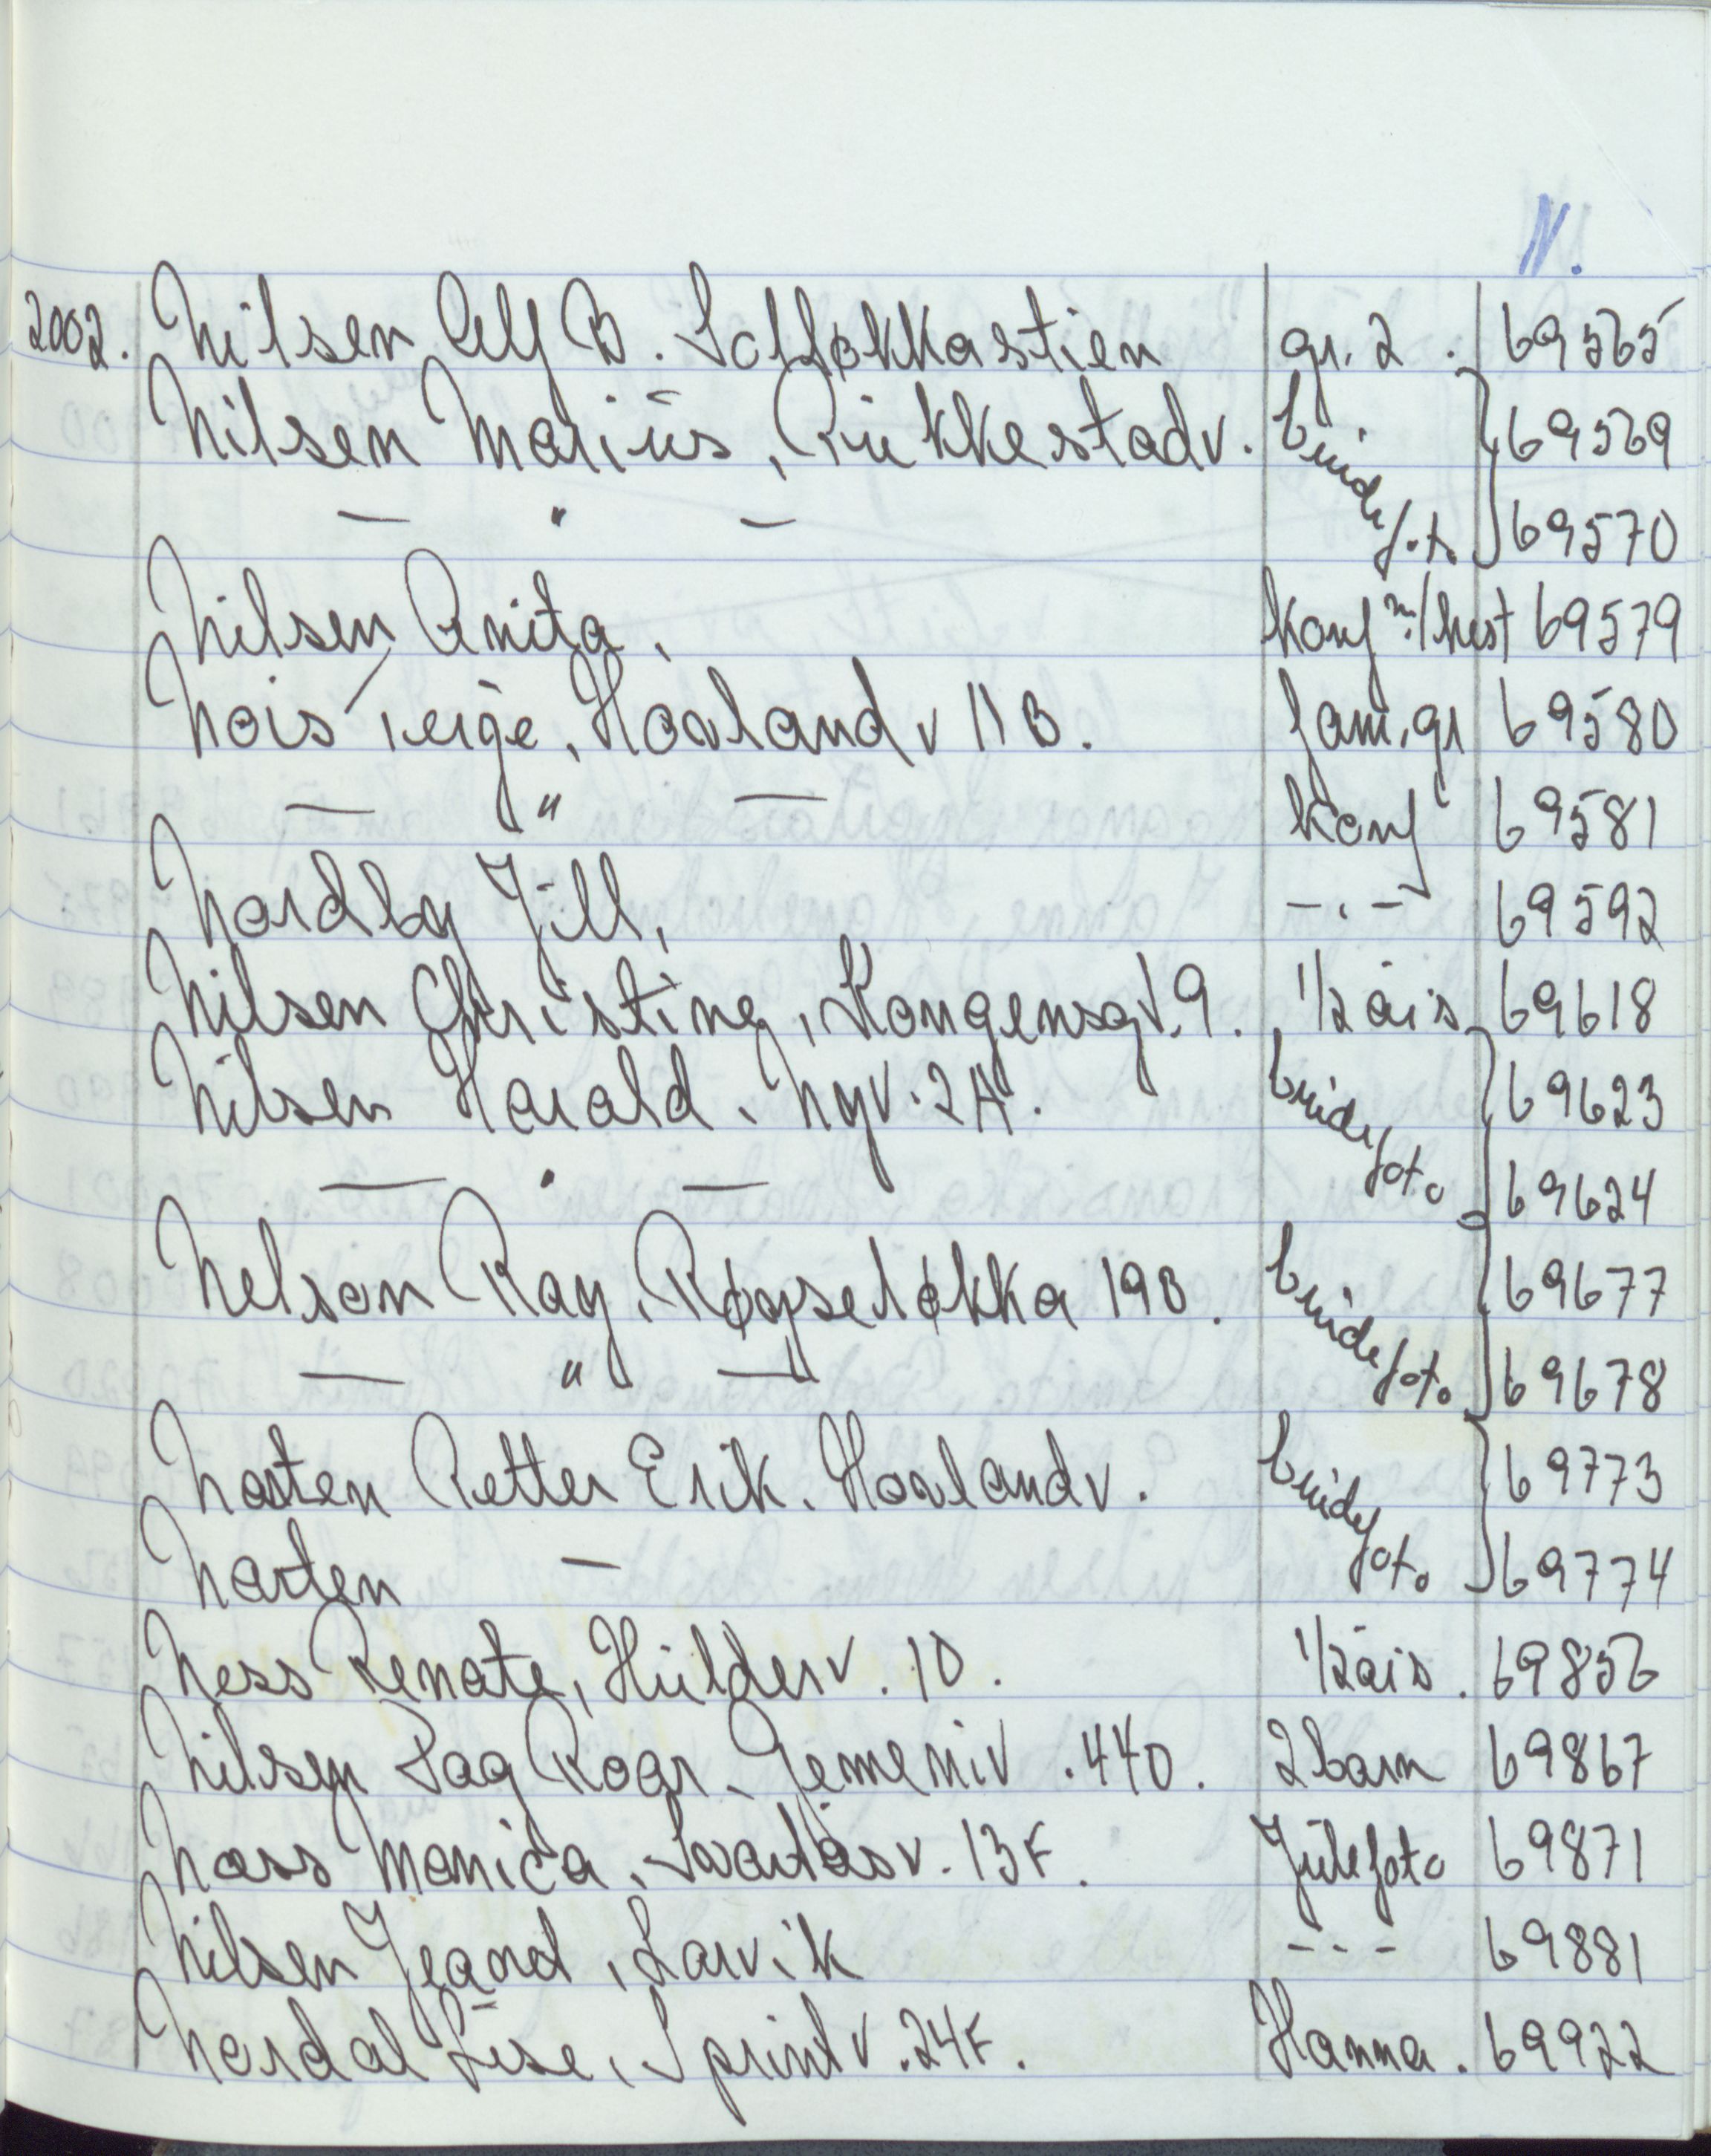 N.
2002. Nilsen Alf B. Solløkkastien gr. 2. 69565
Nilsen Marius, Rukkestadv. brudefoto 69569
— " — 69570
Nilsen Anita, konf m/hest 69579
Nois Terge, Hovland v 11B. fam.gr 69580
— " — konf 69581
Nordby Jill, -.- 69592
Nilsen Christine, Kongensgt.9. 1/2 års 69618
Nilsen Harald, Nyv. 2A. brudefoto 69623
— " — 69624
Nelson Ray, Røyseløkka 19B. brudefoto 69677
— " — 69678
Narten Petter Erik. Hovlandv. brudefoto 69773
Narten — 69774
Ness Renate, Hulderv. 10. 1/2 års. 69856
Nilsen Dag Roar, Gemeniv. 44D. 2 barn 69867
Noss Monica, Svartåsv. 13F. Julefoto 69871
Nilsen Jeanet, Larvik -.- 69881
Nordal Lise, Sprintv. 24F. Hanna. 69922